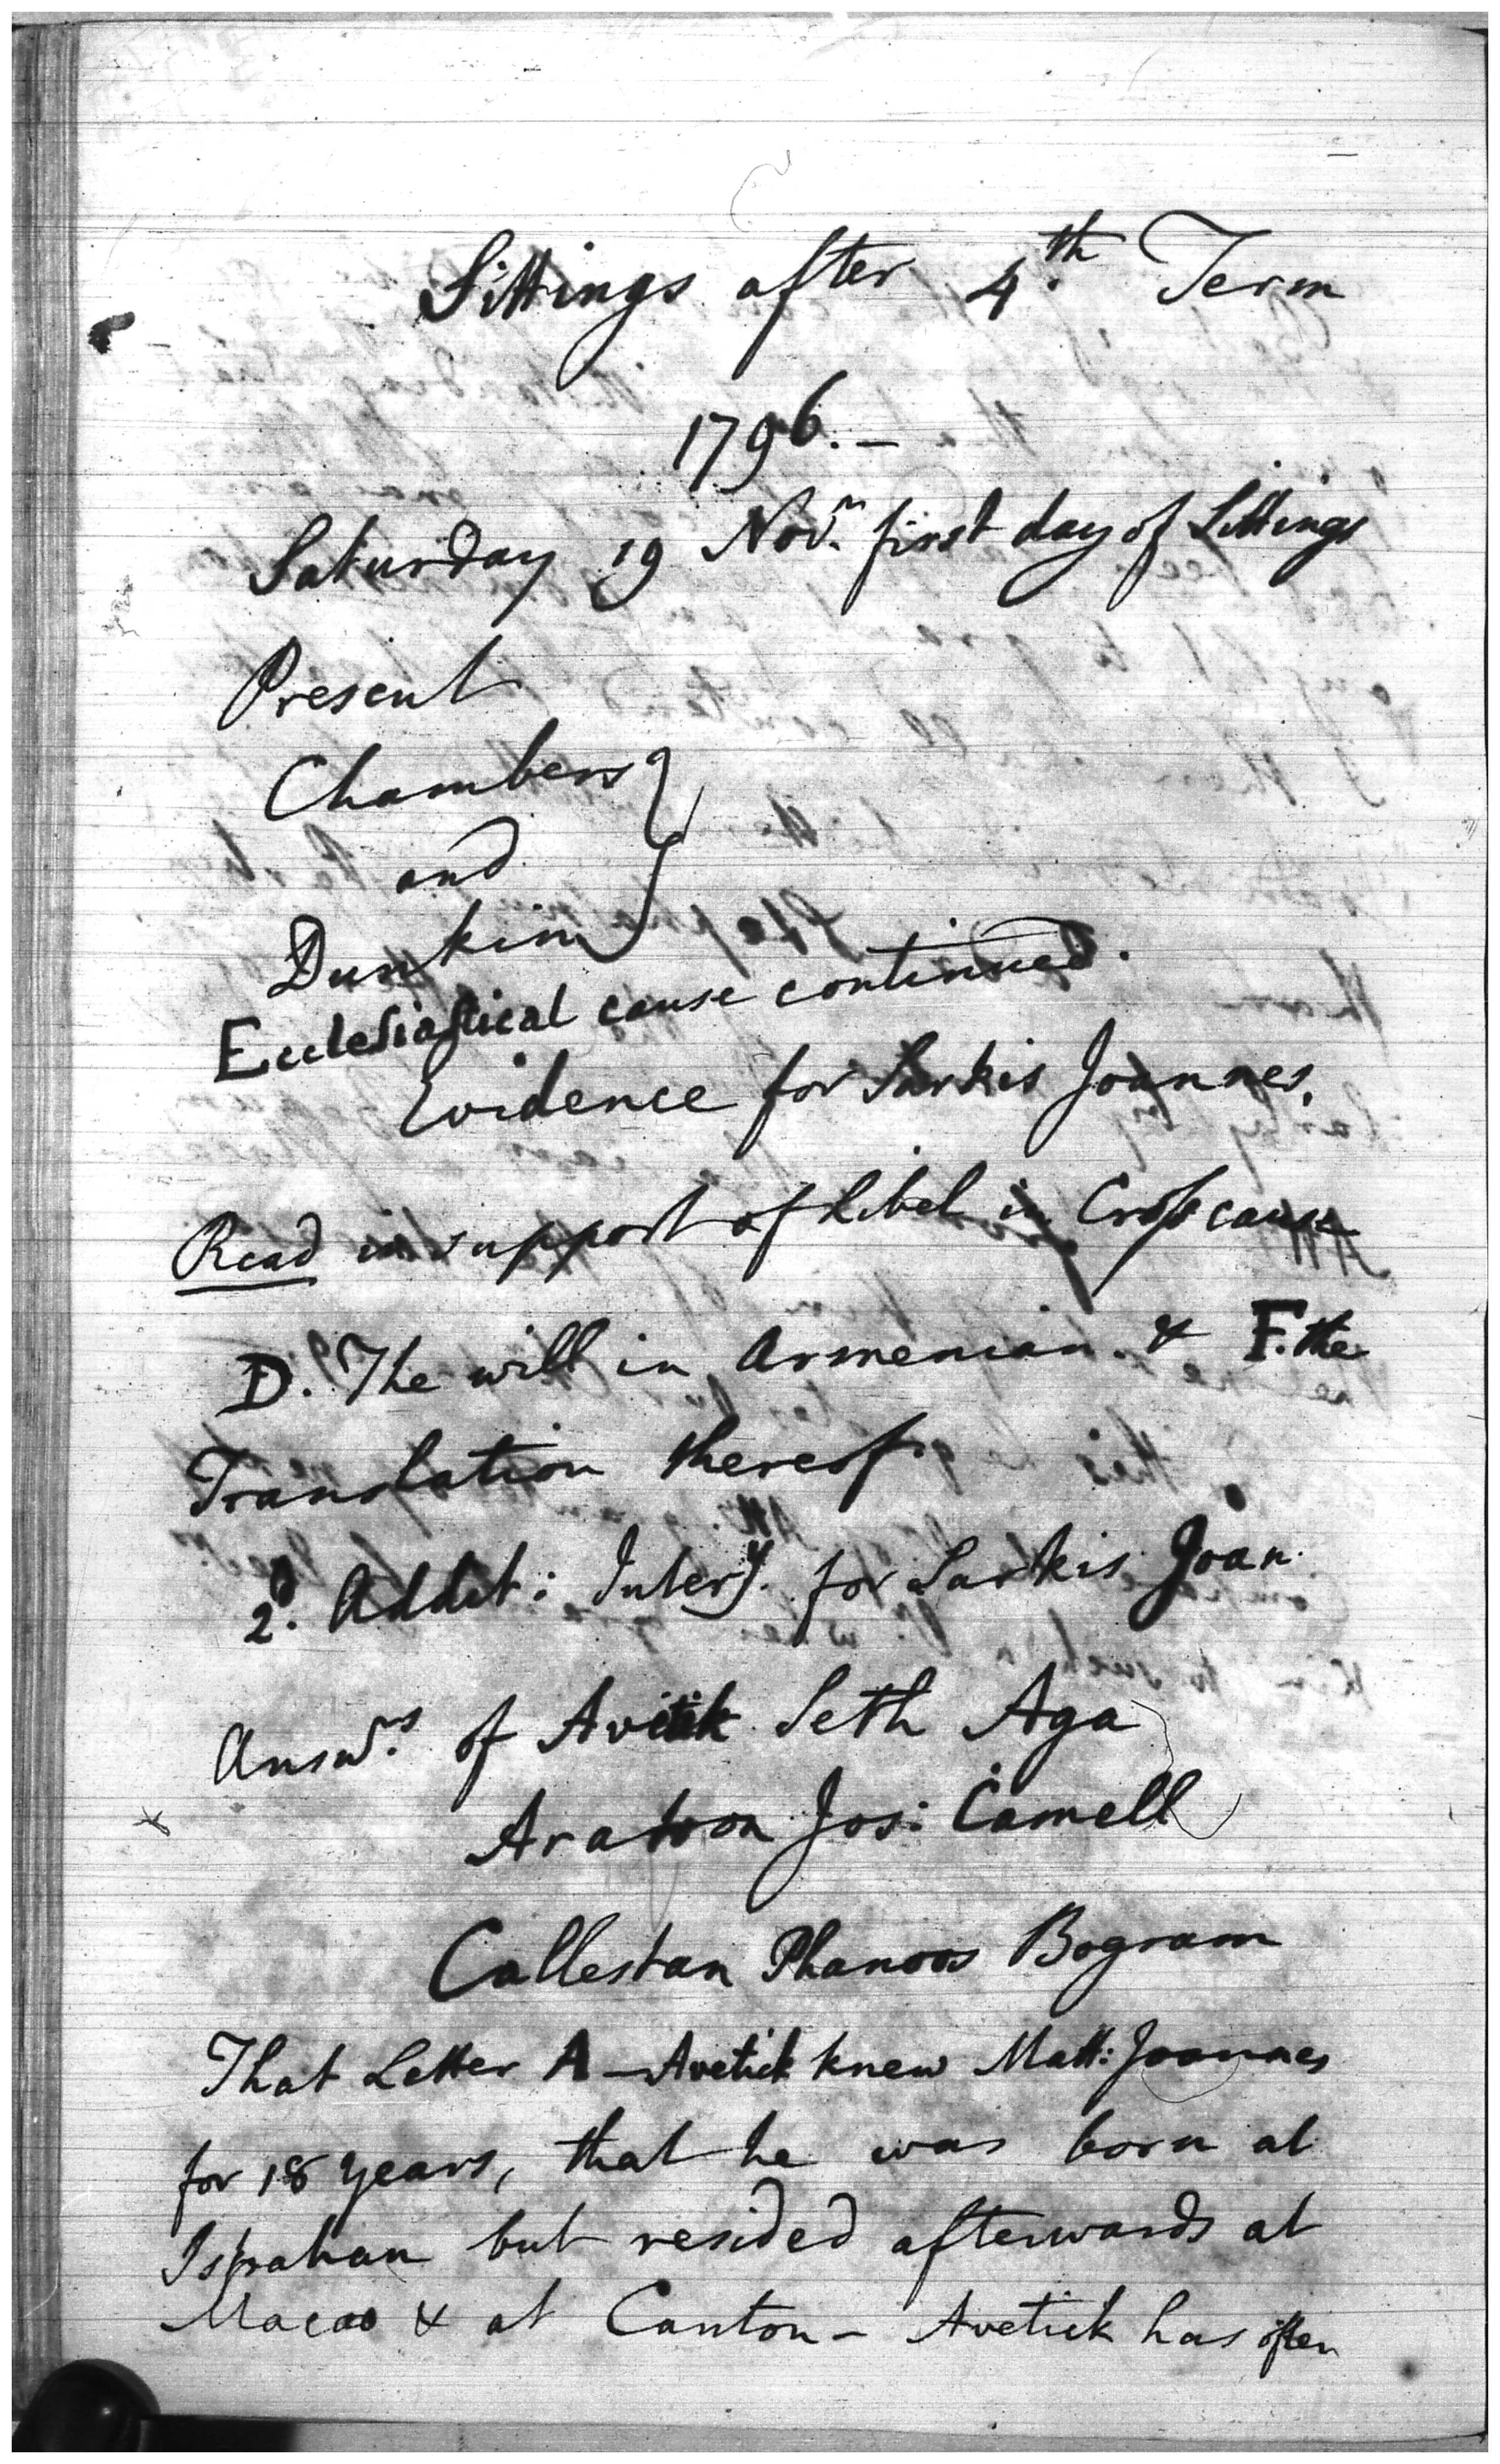 Sittings after 4th Term
1796. —
Saturday 19 Novr. first day of Sittings
Present
Chambers
and
Dunkin
Ecclesiastical cause continued.
Evidence for Sarkis Joannes.
Read in support of Libel in Cross cause
D. The will in Armenian & F. the
Translation thereof.
2d. Addit: Intery. for Sarkis Joan:
Answrs. of Avitik Seth Aga
Aratoon Jos: Camell
Callestan Phanoos Bogram
That Letter A — Avetick knew Matt: Joannes
for 18 years, that he was born at
Ispahan but resided afterwards at
Macao & at Canton — Avetick has often